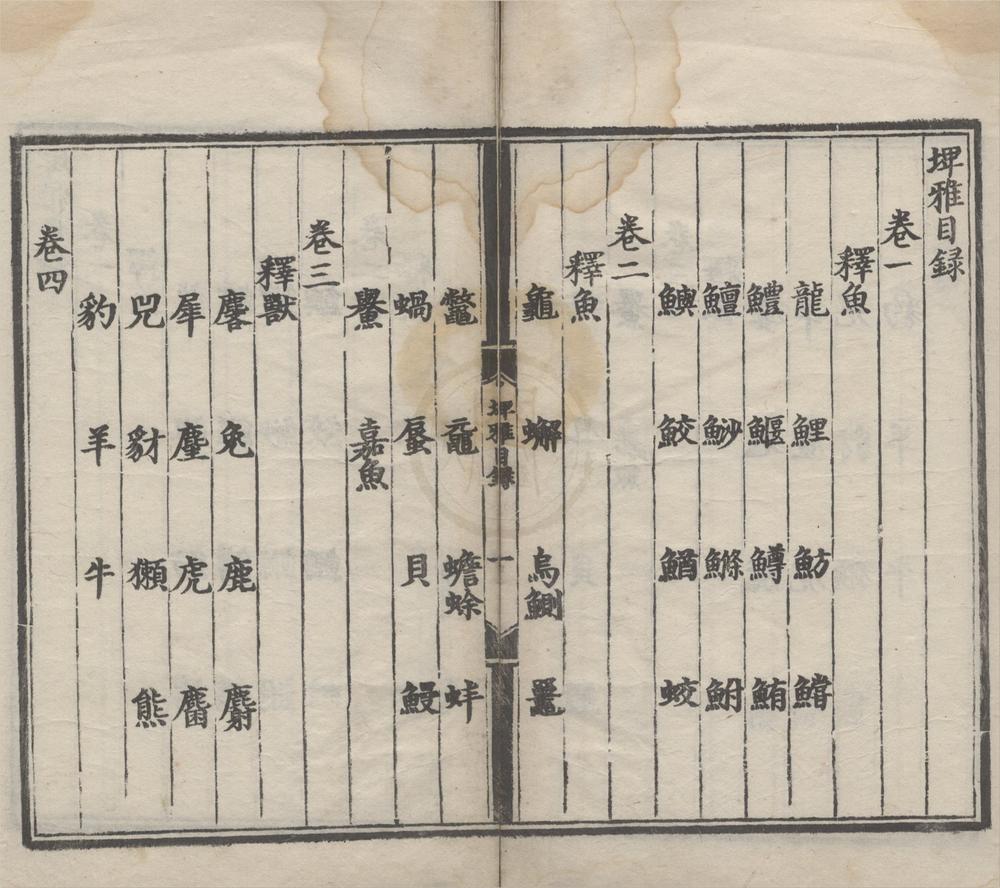 埤雅目錄
卷一
釋魚
龍 鯉 魴 鱨
鱧 鰋 鱒 鮪
鱣 魦 鰷 鮒
鱮 鮫 鰌 蛟
卷二
釋魚
龜 蠏 烏鰂 鼉
埤雅目錄 一
鼈 黿 蟾蜍 蚌
蝸 蜃 貝 鰻
鱟 嘉魚
卷三
釋獸
麐 兔 鹿 麝
犀 麈 虎 麕
兕 豺 獺 熊
豹 羊 牛
卷四